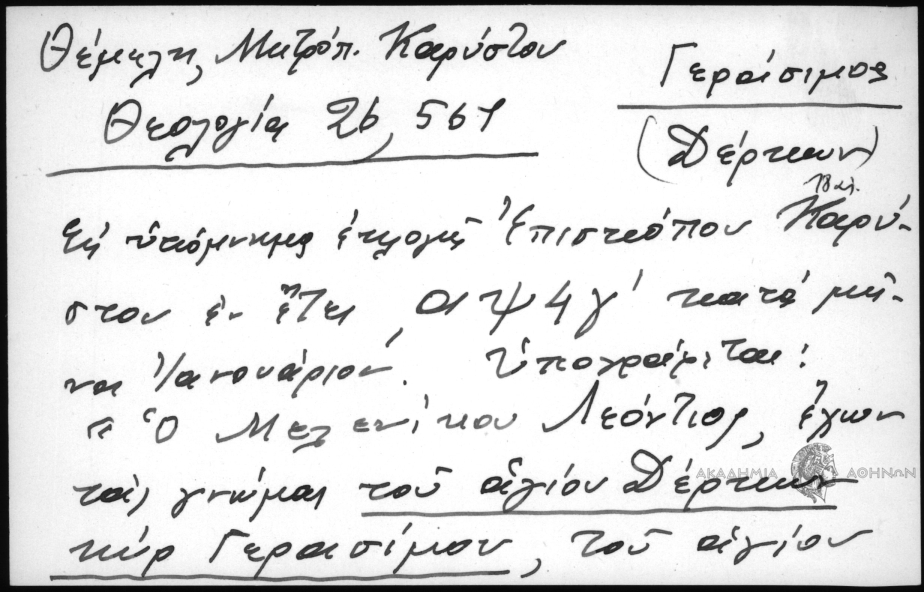 Θέμελη, Μητροπ. Καρύστου
Γεράσιμος
Θεολογία 26, 561
(Δέρκων)
Βλ.
Εἰς ὑπόμνημα ἐκλογῆς Ἐπισκόπου Καρύ-
στου ἐν ἔτει ͵αψ4γ' κατὰ μῆ-
να Ἰανουάριον. Ὑπογράφεται:
"Ὁ Μελενίκου Λεόντιος, ἔχων
τὰς γνώμας τοῦ ἁγίου Δέρκων
κὺρ Γερασίμου, τοῦ ἁγίου
ΑΚΑΔΗΜΙΑ ΑΘΗΝΩΝ